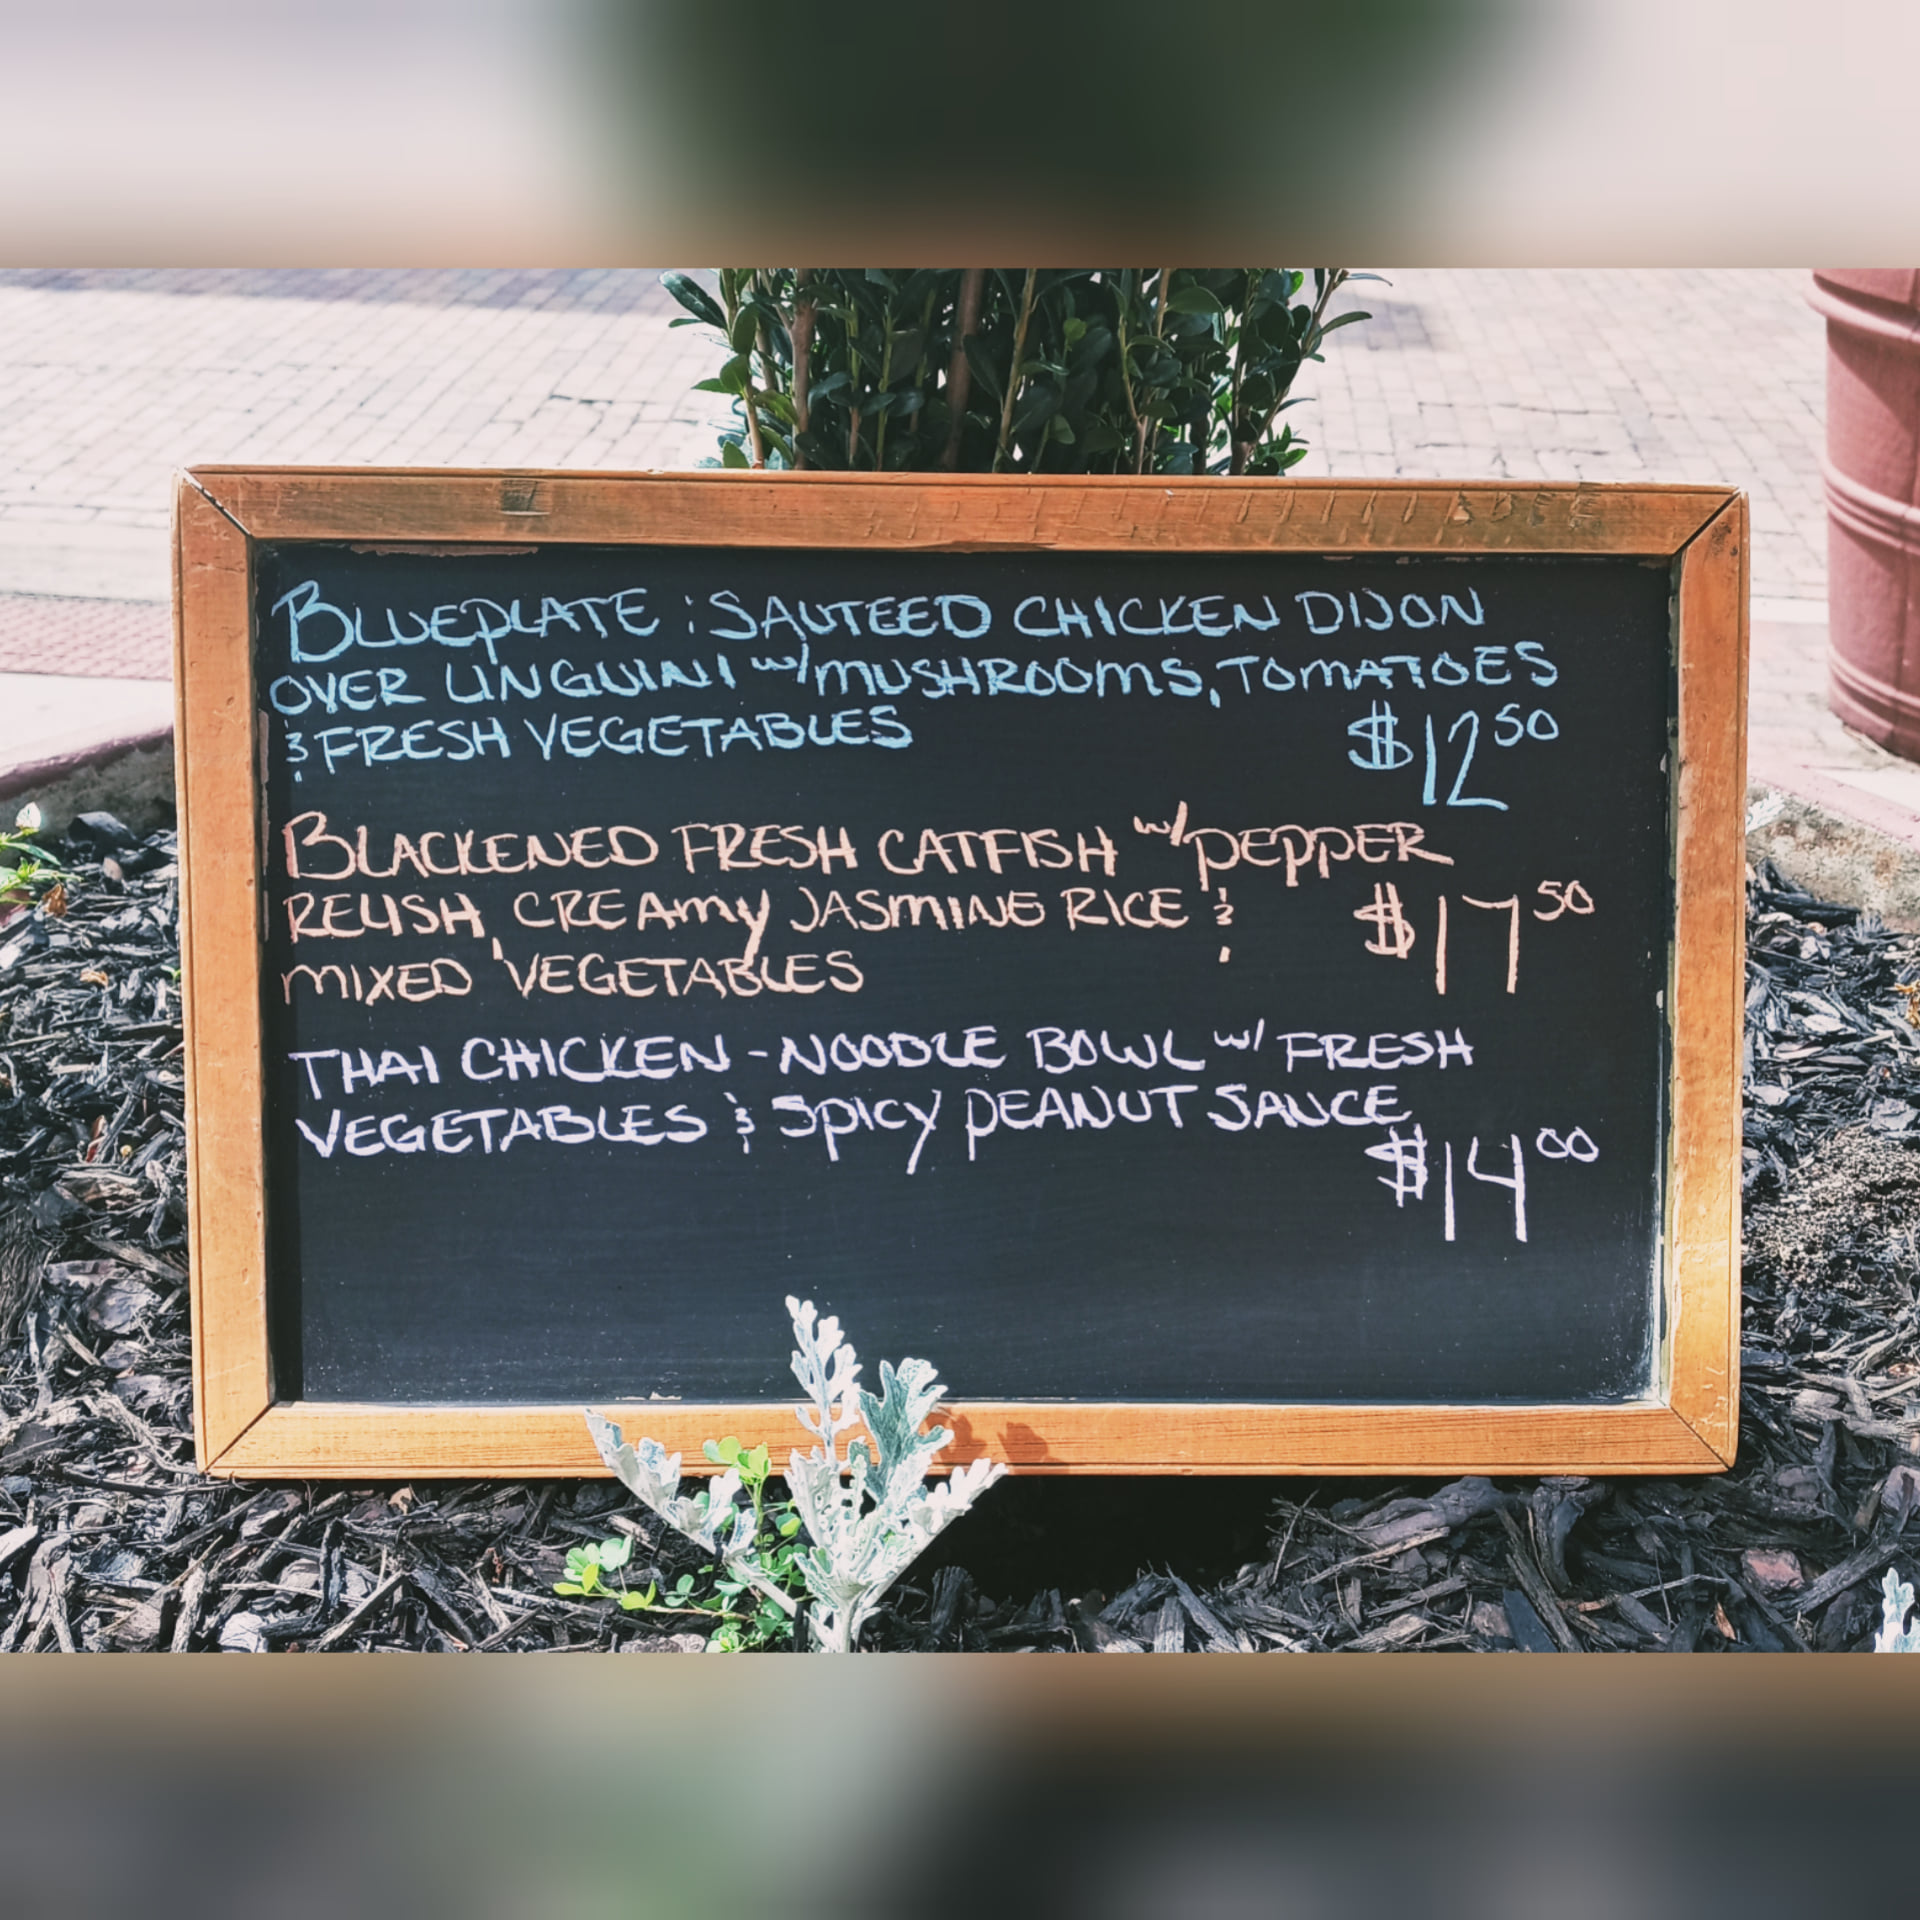 BLUEPLATE: SAUTEED CHICKEN DIJON
OVER LINGUINI w/MUSHROOMS, TOMATOES
& FRESH VEGETABLES $12 50
BLACKENED FRESH CATFISH w/PEPPER
RELISH, CREAMY JASMINE RICE & $17 50
MIXED VEGETABLES
THAI CHICKEN-NOODLE BOWL w/ FRESH
VEGETABLES & SPICY PEANUT SAUCE
$14 00